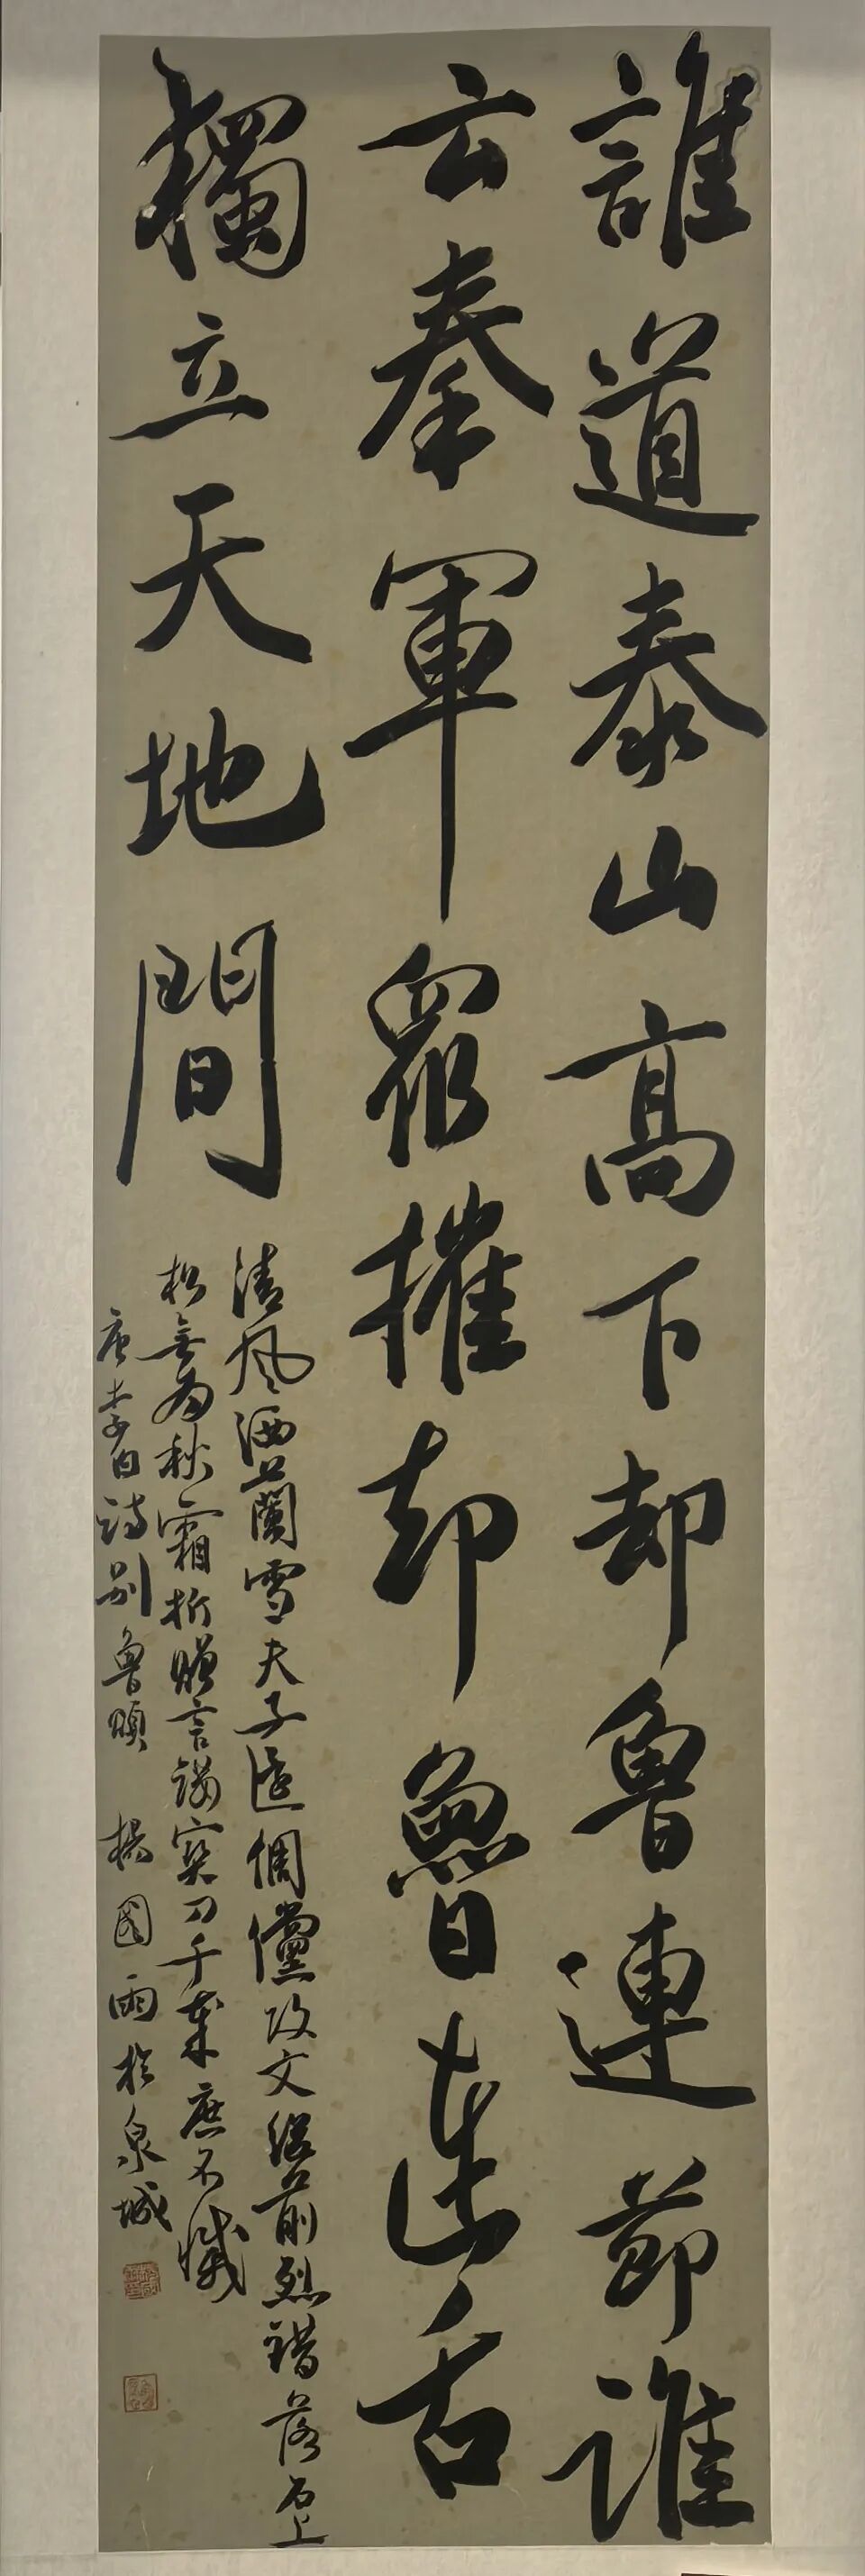 誰道泰山高下却魯連節誰
云秦軍衆摧却魯連舌
獨立天地間
清風洒蘭雪夫子還倜儻攻文繼前烈錯落石上
松無為秋霜折贈言鏤寶刀千歲庶不滅
唐李白詩別魯頌 楊國雨於泉城